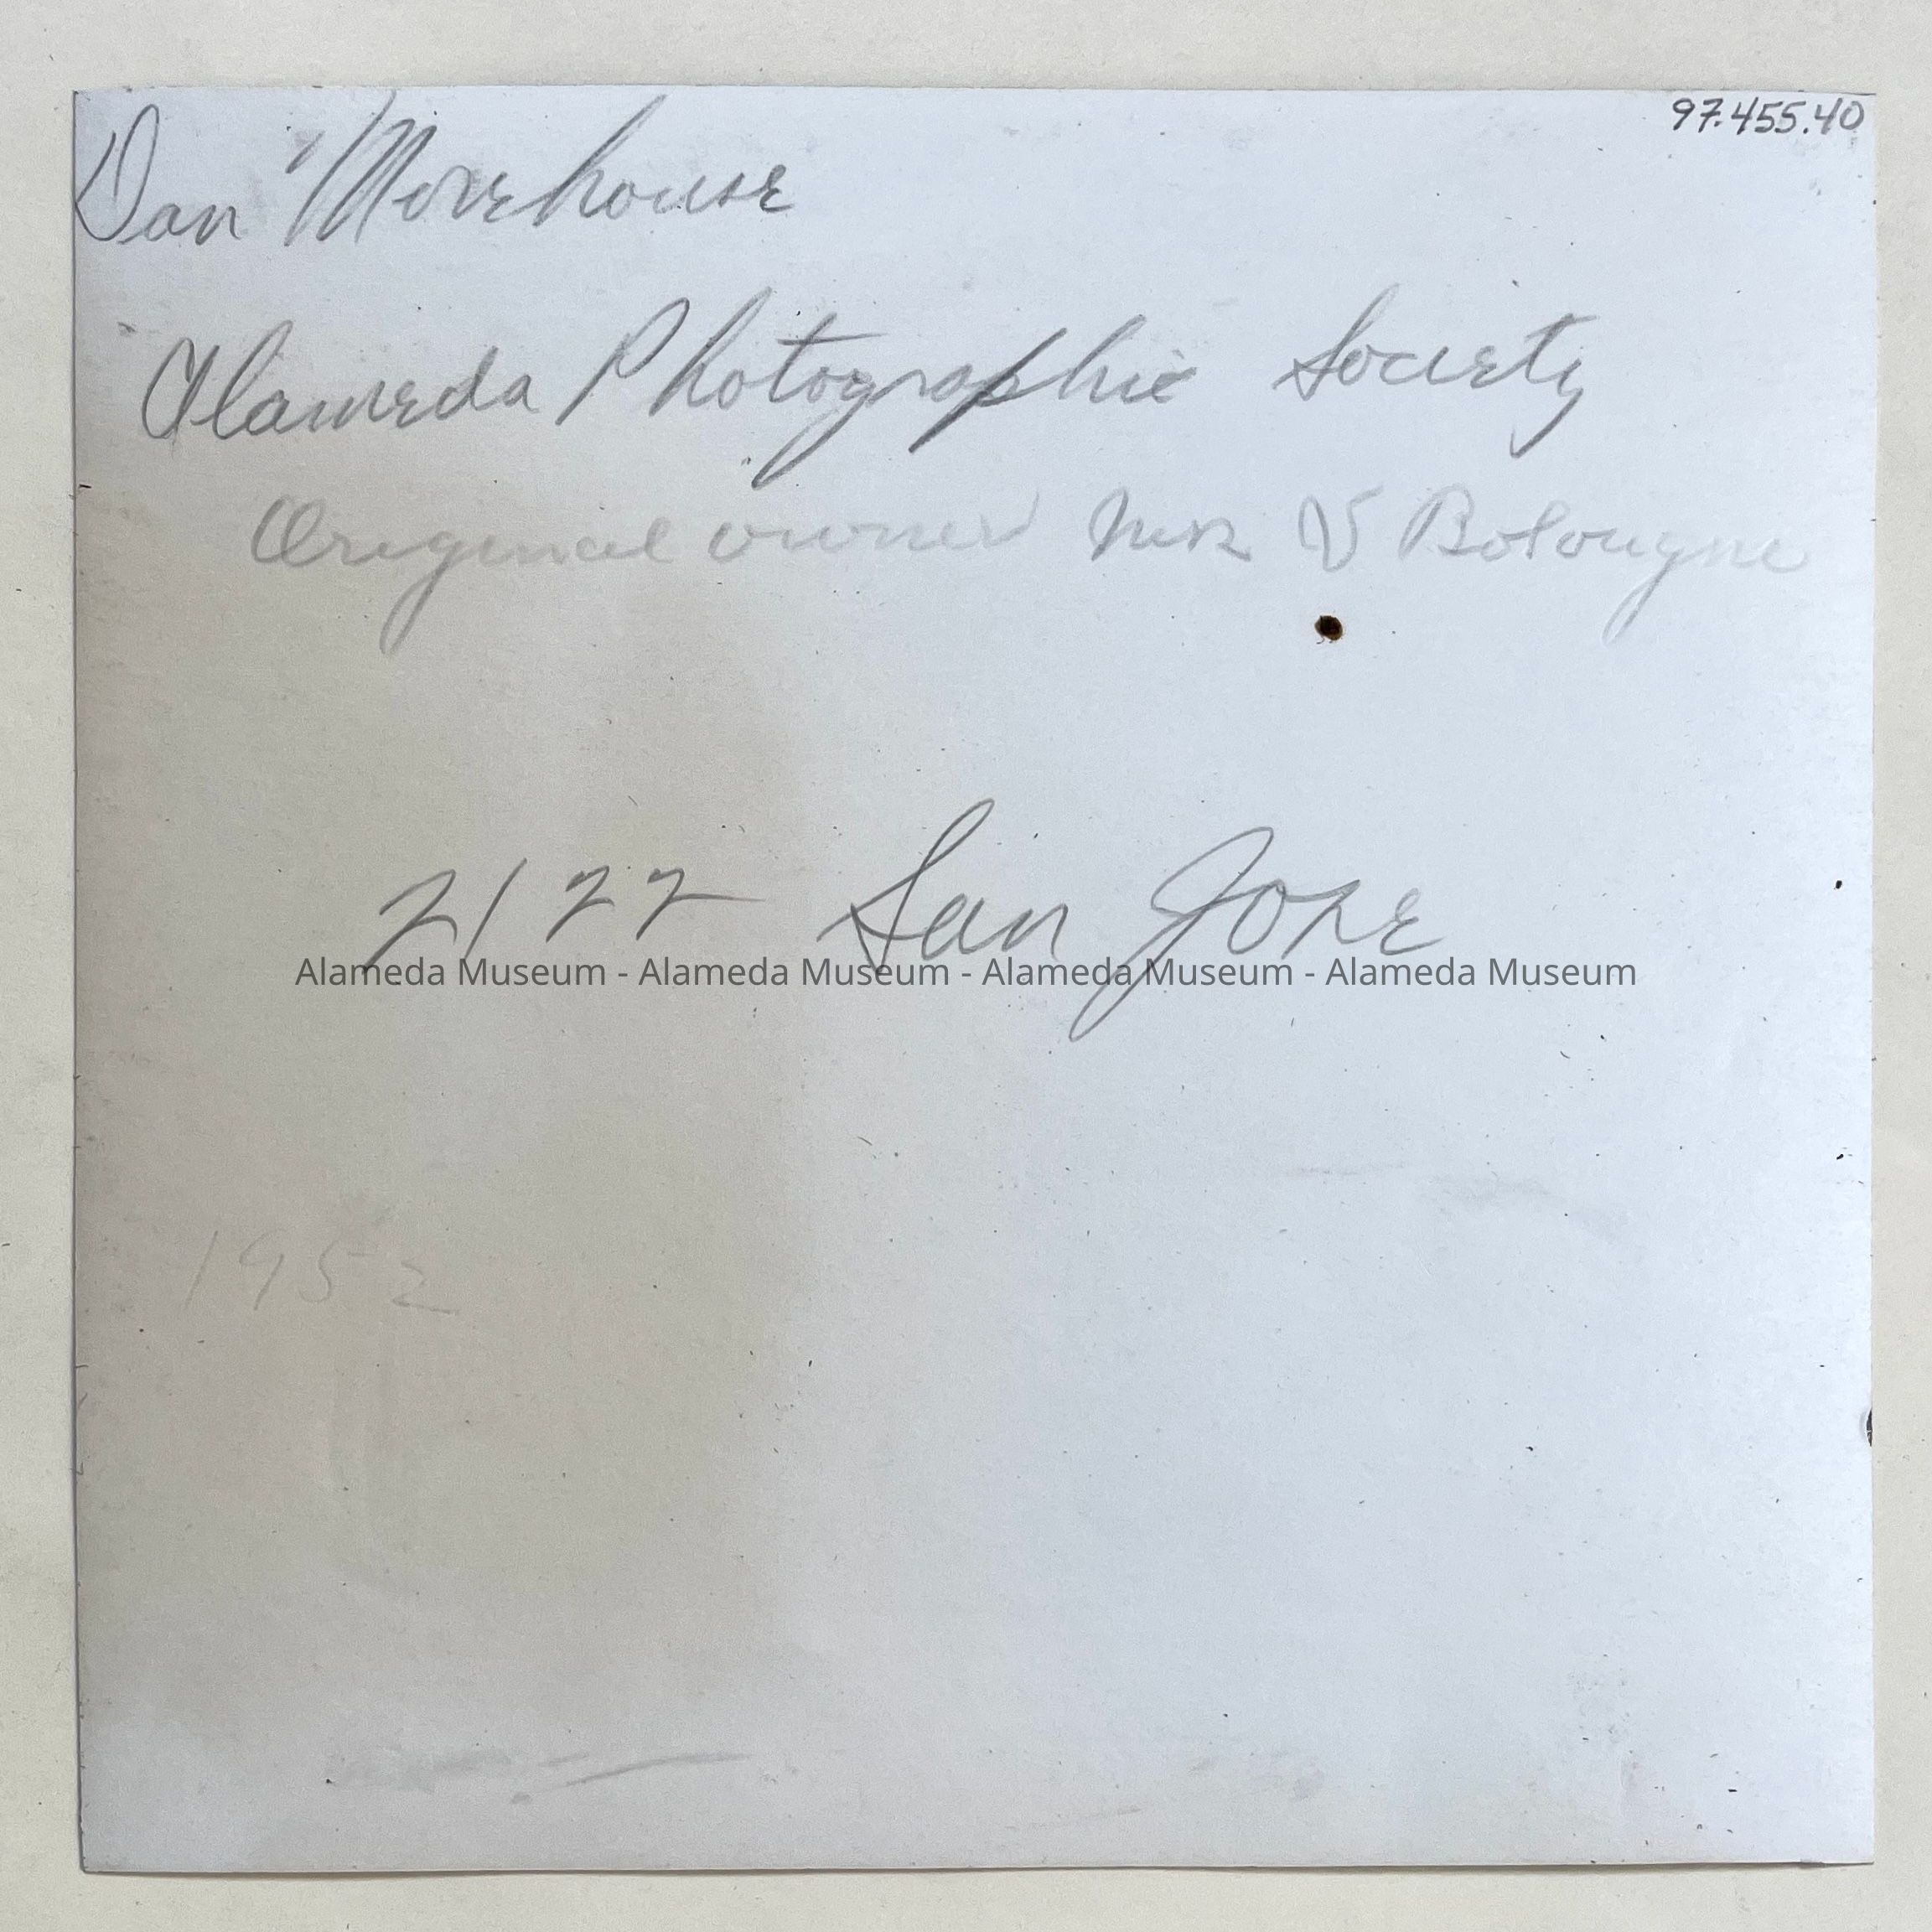 97.455.40
Dan Morehouse
Alameda Photographic Society
Original owner V Bolougne
2122 San Jose
Alameda Museum - Alameda Museum - Alameda Museum - Alameda Museum
1952